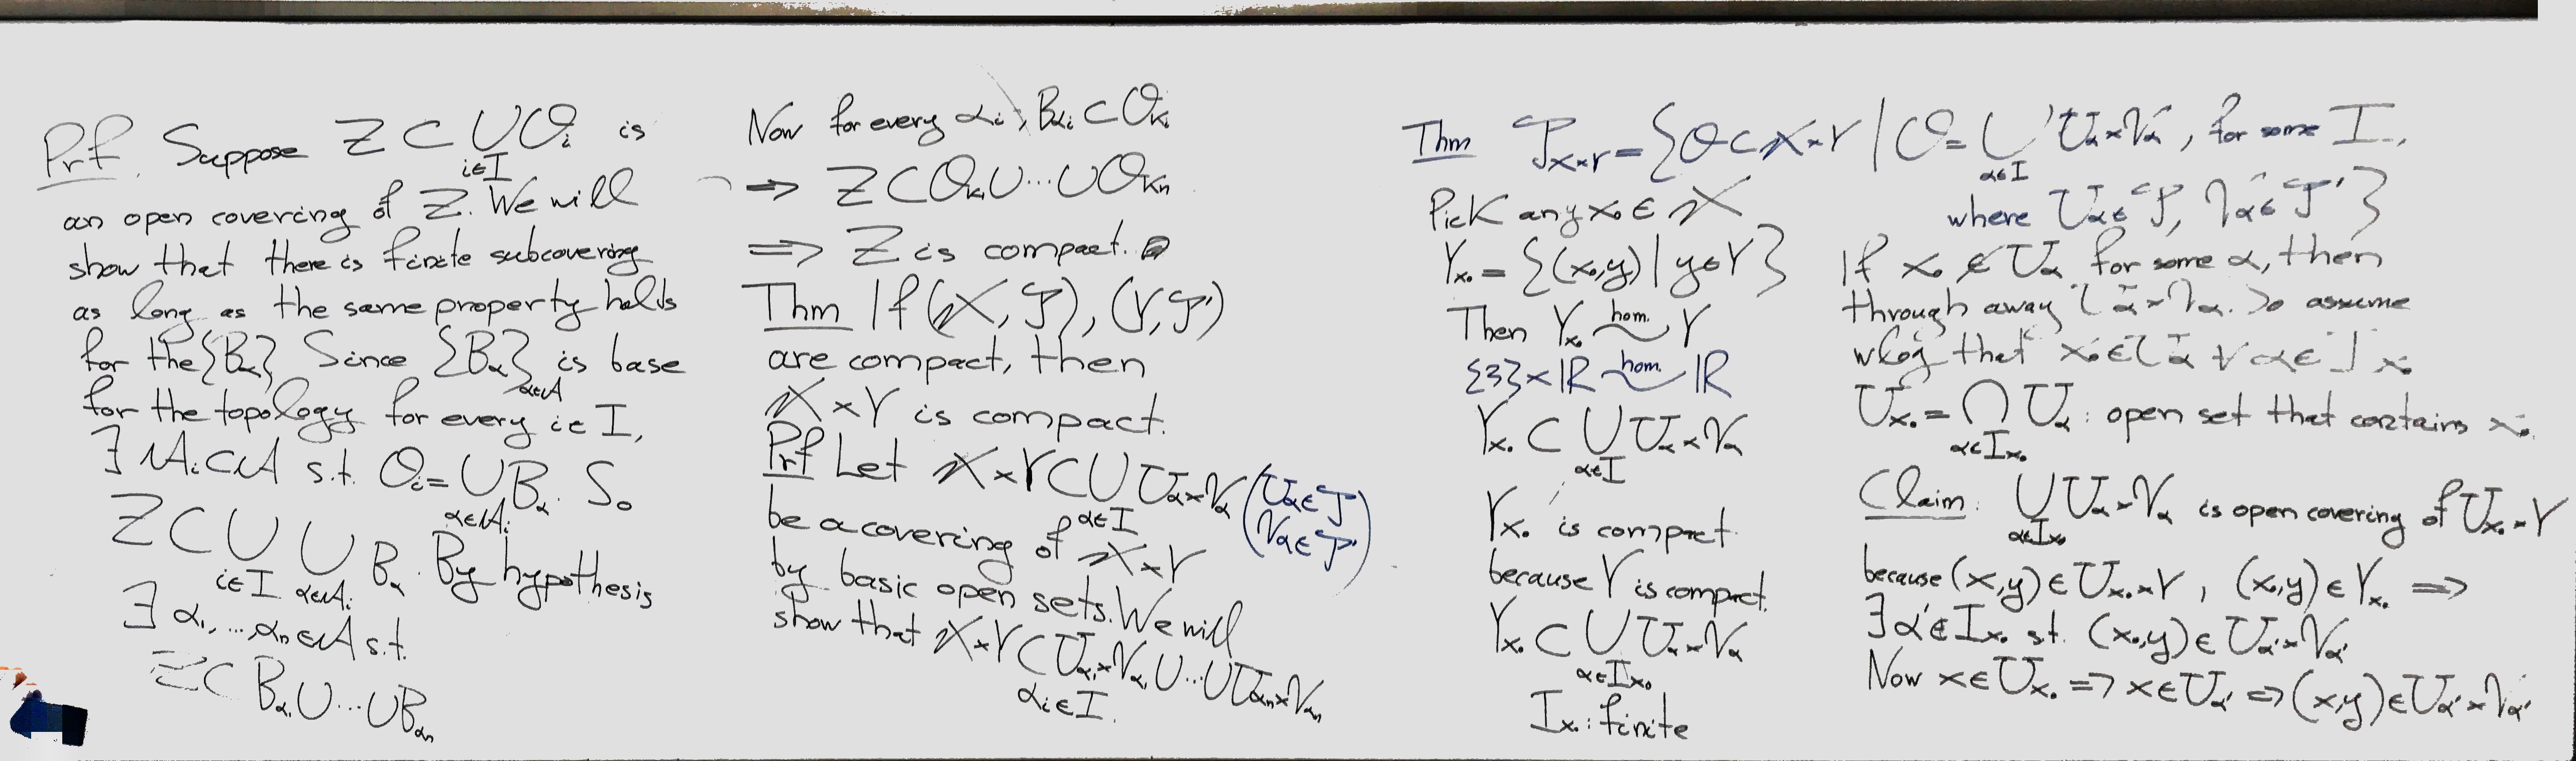 Prf. Suppose Z ⊂ ∪_{i∈I} O_i is
an open covering of Z. We will
show that there is finite subcovering
as long as the same property holds
for the {B_α} Since {B_α}_{α∈A} is base
for the topology for every i∈I,
∃ A_i ⊂ A s.t. O_i = ∪_{α∈A_i} B_α. So
Z ⊂ ∪_{i∈I} ∪_{α∈A_i} B_α. By hypothesis
∃ α_1, ..., α_n ∈ A s.t.
Z ⊂ B_{α_1} ∪ ... ∪ B_{α_n}
Now for every α_i, B_{α_i} ⊂ O_{k_i}
⇒ Z ⊂ O_{k_1} ∪ ... ∪ O_{k_n}
⇒ Z is compact.
Thm If (X, T), (Y, T')
are compact, then
X × Y is compact.
Prf Let X × Y ⊂ ∪_{α∈I} U_α × V_α (U_α ∈ T V_α ∈ T')
be a covering of X × Y
by basic open sets. We will
show that X × Y ⊂ U_{α_1} × V_{α_1} ∪ ... ∪ U_{α_n} × V_{α_n}
α_i ∈ I.
Thm T_{X×Y} = {O ⊂ X × Y | O = ∪_{α∈I} U_α × V_α, for some I,
where U_α ∈ T, V_α ∈ T'}
Pick any x_0 ∈ X
Y_{x_0} = {(x_0, y) | y ∈ Y}
Then Y_{x_0} hom. ~ Y
{3} × ℝ hom. ~ ℝ
Y_{x_0} ⊂ ∪_{α∈I} U_α × V_α
Y_{x_0} is compact
because Y is compact.
Y_{x_0} ⊂ ∪_{α∈I_{x_0}} U_α × V_α
I_{x_0} : finite
If x_0 ∉ U_α for some α, then
through away U_α × V_α. So assume
wlog that x_0 ∈ U_α ∀ α ∈ I_{x_0}
U_{x_0} = ∩_{α∈I_{x_0}} U_α : open set that contains x_0.
Claim: ∪_{α∈I_{x_0}} U_α × V_α is open covering of U_{x_0} × Y
because (x, y) ∈ U_{x_0} × Y, (x_0, y) ∈ Y_{x_0} ⇒
∃ α' ∈ I_{x_0} s.t. (x_0, y) ∈ U_{α'} × V_{α'}
Now x ∈ U_{x_0} ⇒ x ∈ U_{α'} ⇒ (x, y) ∈ U_{α'} × V_{α'}